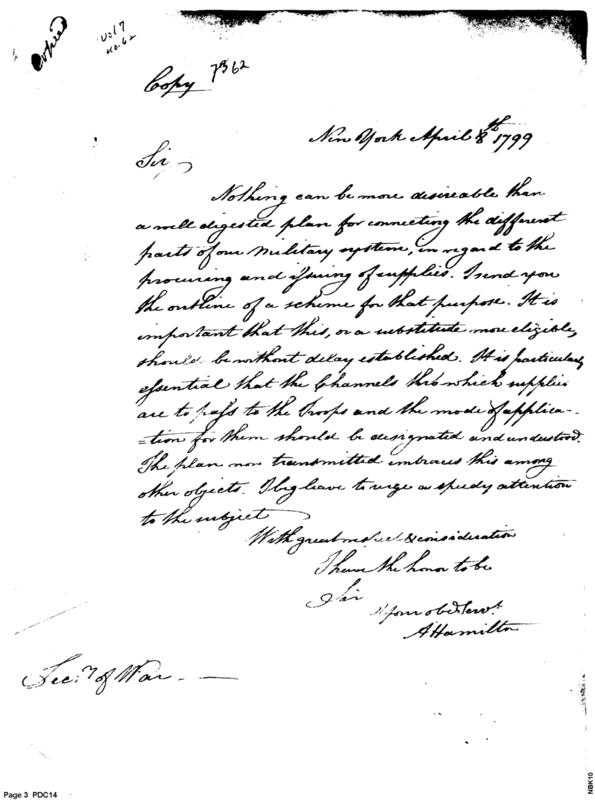 Copied
Vol 7
No. 62
Copy 7362
New York April 8th 1799
Sir,
Nothing can be more desireable than
a well digested plan for connecting the different
parts of our Military system, in regard to the
procuring and issuing of supplies. I send you
the outline of a scheme for that purpose. It is
important that this, or a substitute more eligible,
should be without delay established. It is particularly
essential that the Channels thro which supplies
are to pass to the Troops and the mode of applica-
=tion for them should be designated and understood.
The plan now transmitted embraces this among
other objects. I beg leave to urge a speedy attention
to the subject
With great respect & consideration
I have the honor to be
Sir
Your obd Servt.
AHamilton
Secry of War
Page 3 PDC14
NBK10